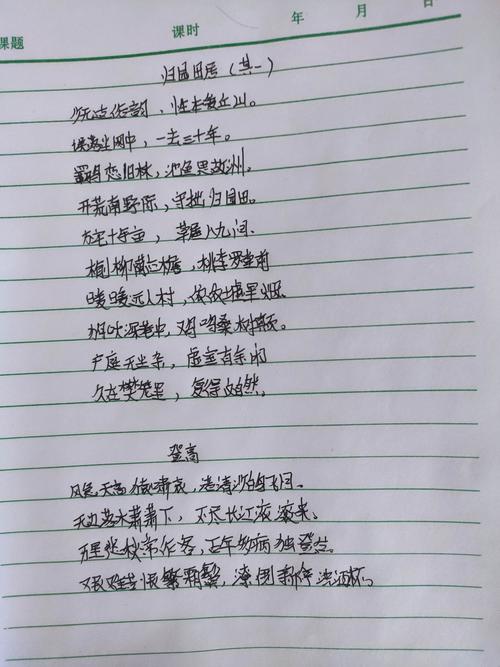 课题 课时 年 月
归园田居(其一)
少无适俗韵,性本爱丘山。
误落尘网中,一去三十年。
羁鸟恋旧林,池鱼思故渊。
开荒南野际,守拙归园田。
方宅十余亩,草屋八九间。
榆柳荫后檐,桃李罗堂前
暧暧远人村,依依墟里烟。
狗吠深巷中,鸡鸣桑树颠。
户庭无尘杂,虚室有余闲
久在樊笼里,复得返自然。
登高
风急天高猿啸哀,渚清沙白鸟飞回。
无边落木萧萧下,不尽长江滚滚来。
万里悲秋常作客,百年多病独登台。
艰难苦恨繁霜鬓,潦倒新停浊酒杯。